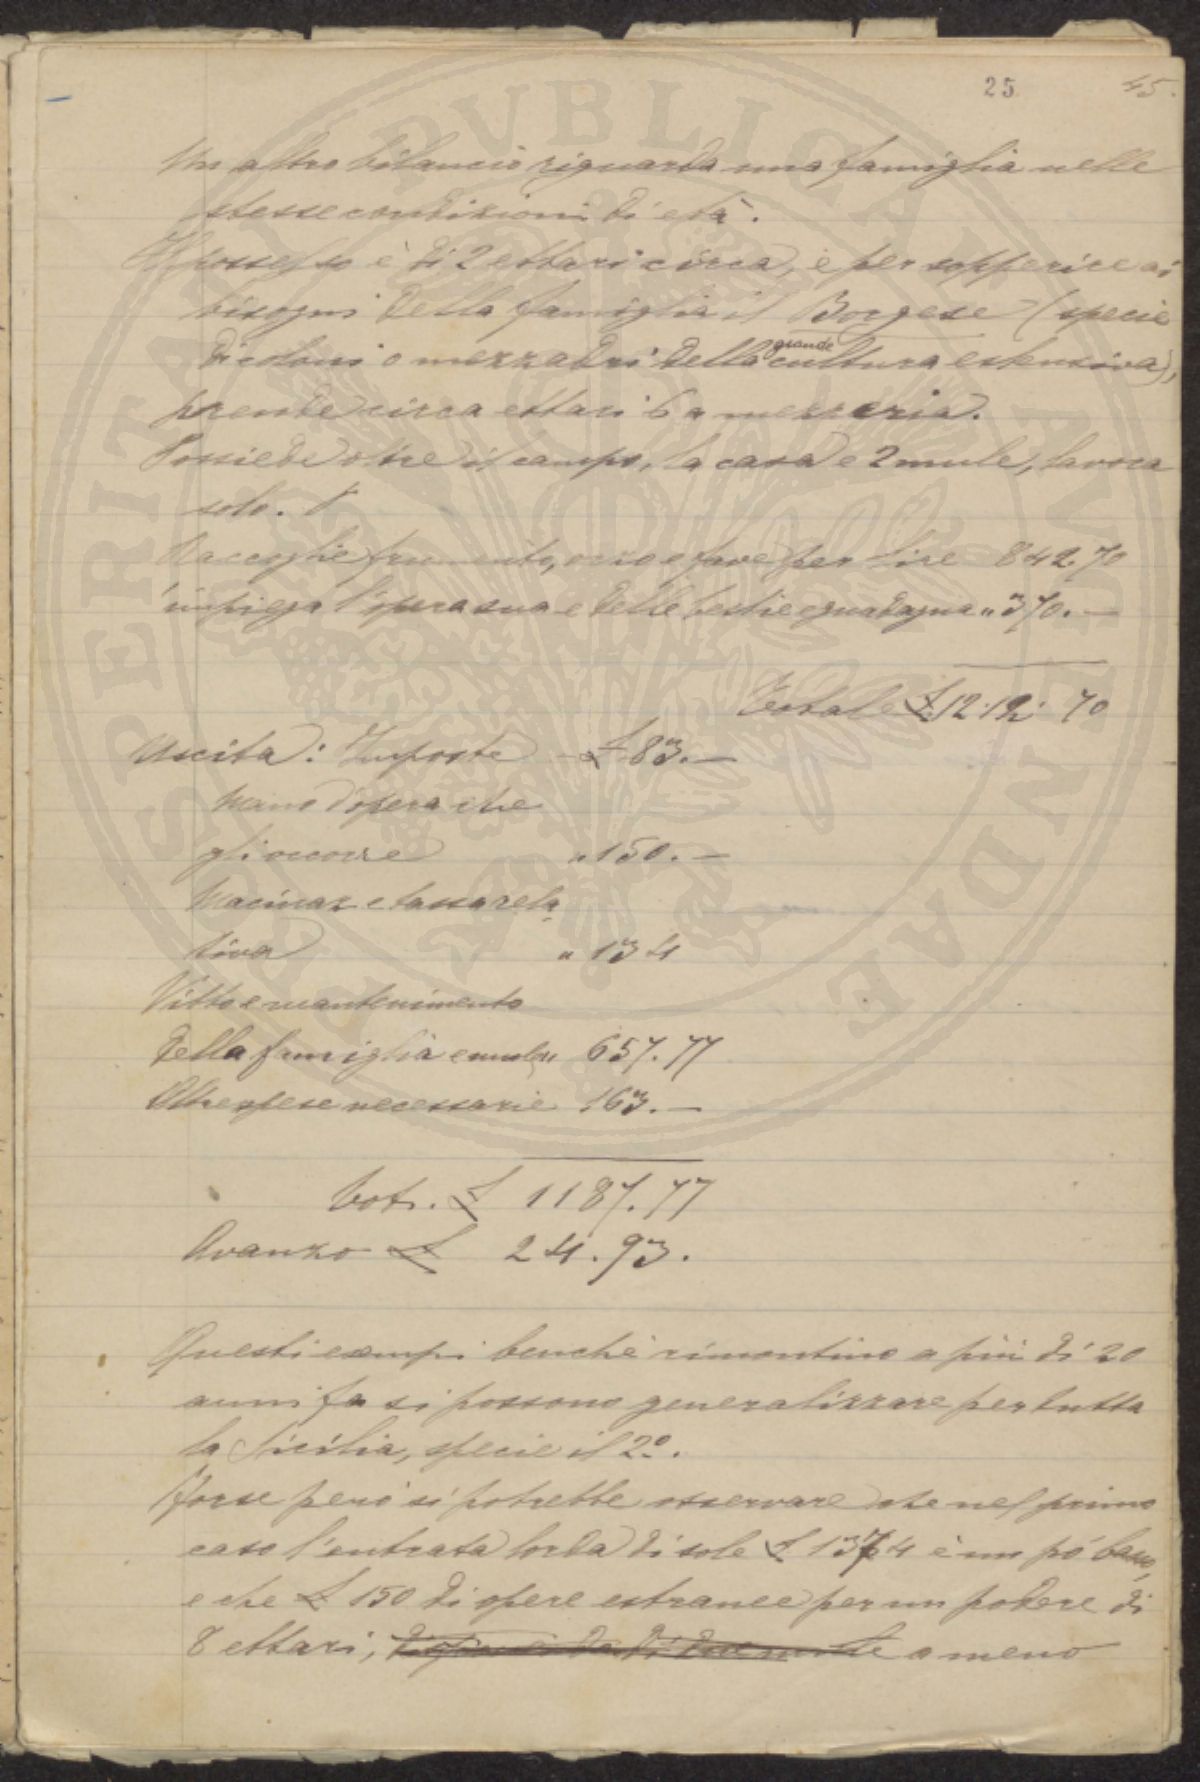 25
45.
Un altro bilancio riguarda una famiglia nelle
stesse condizioni di età.
Il possesso è di 2 ettari circa, e per sopperire ai
bisogni della famiglia il Borgese (specie
di coloni o mezzadri della grande cultura estensiva),
prende circa ettari 6 a mezzeria.
Possiede oltre il campo, la casa e 2 mule, lavora
solo.
Raccoglie frumento, orzo e fave per lire 842.70
impiega l'opera sua e delle bestie e guadagna " 370.—
Totale £ 1212.70
Uscita: Imposte £ 83.—
Mano d'opera che
gli occorre " 150.—
Macinaz e tassa rela
tiva " 134
Vitto e mantenimento
della famiglia e mule " 657.77
Altre spese necessarie 163.—
Tot. £ 1187.77
Avanzo £ 24.93.
Questi esempi benchè rimontino a più di 20
anni fa si possono generalizzare per tutta
la Sicilia, specie il 2º.
Forse però si potrebbe osservare che nel primo
caso l'entrata lorda di sole £ 1374 è un pó bassa,
e che £ 150 di opere estranee per un podere di
8 ettari, a meno
PVBLICAE AVGENDAE PROSPERITATI